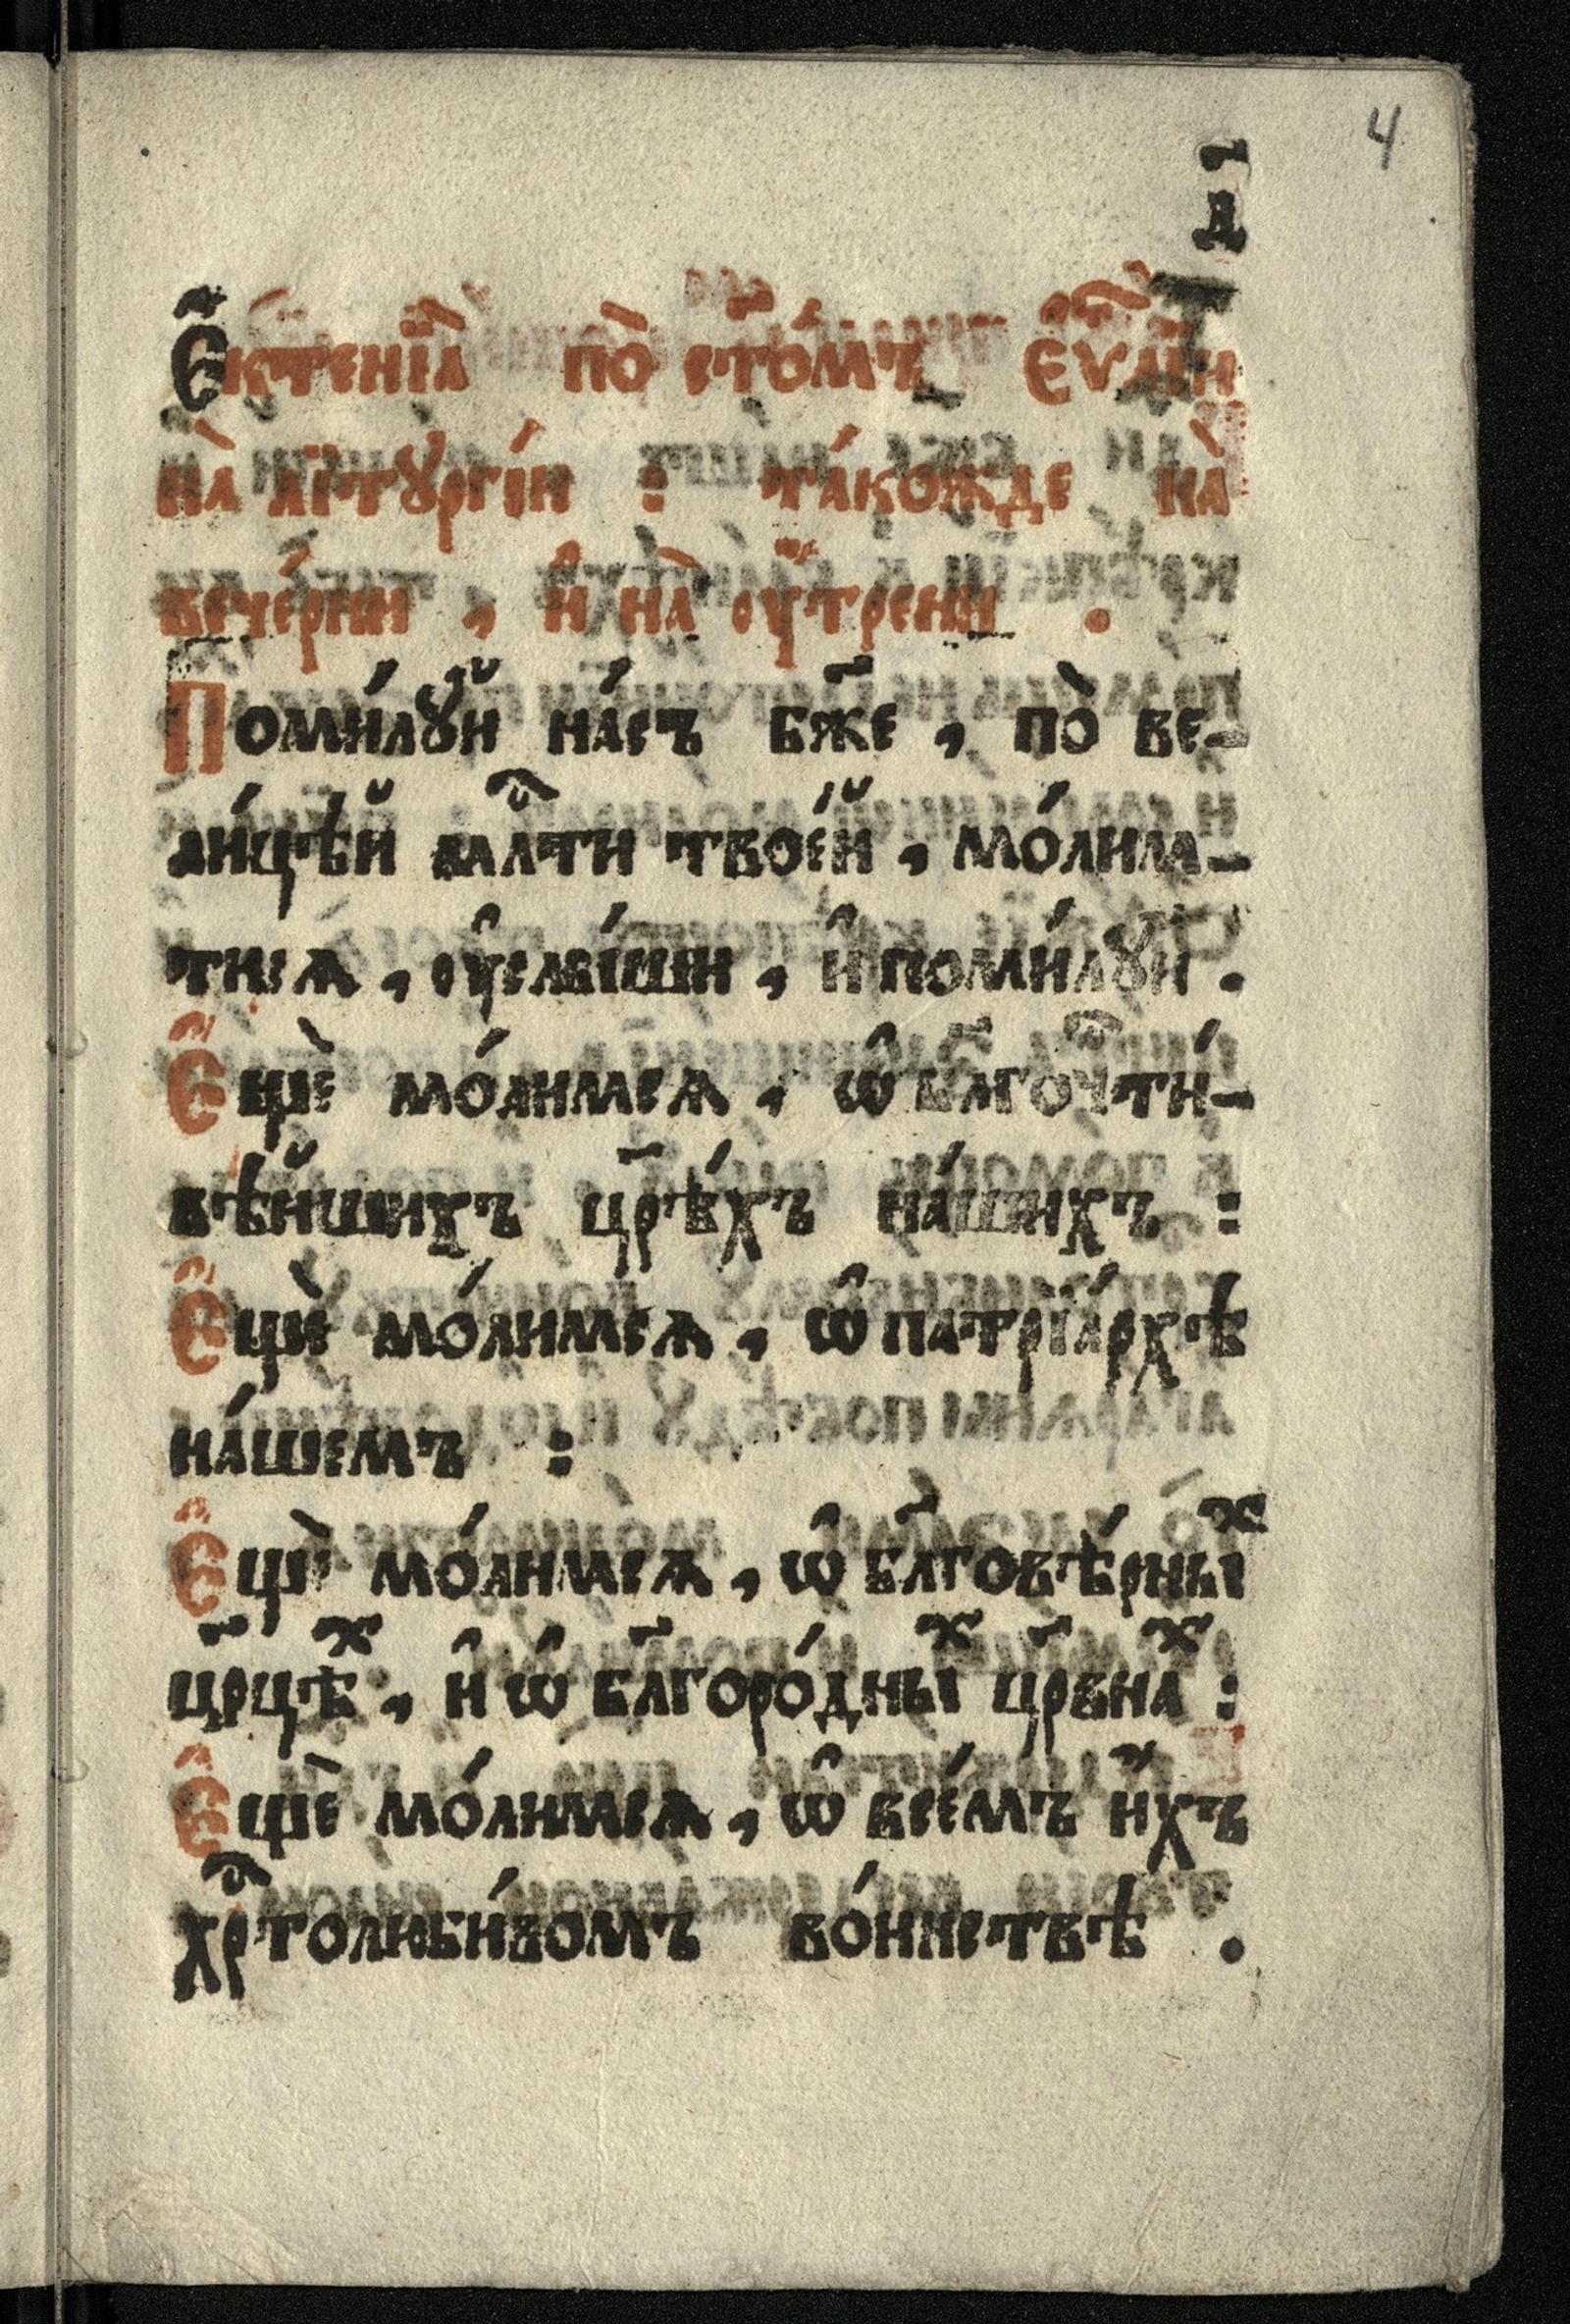 4
д҃
Є҆ктенїѧ̀ по̀ ст҃о́мъ Є҆ѵⷢ҇лїи
на̀ лїтꙋргі́и : та́кожде на̀
вече́рни , и҆ на̀ оу҆́трени .
Поми́лꙋй на́съ бж҃е , по̀ ве-
ли́цѣй млⷭ҇ти твое́й , мо́лим-
тисѧ , оу҆слы́ши , и҆ поми́лꙋй .
Є҆щѐ мо́лимсѧ , ѡ҆ бл҃гочⷭ҇ти́-
вѣйшихъ цр҃ѣ́хъ на́шихъ :
Є҆щѐ мо́лимсѧ , ѡ҆ патрїа́рхѣ
на́шемъ :
Є҆щѐ мо́лимсѧ , ѡ҆ бл҃говѣ́рныⷯ
цр҃цѣⷯ , и҆ ѡ҆ бл҃горо́дныⷯ цр҃внаⷯ :
Є҆щѐ мо́лимсѧ , ѡ҆ все́мъ и҆́хъ
хрⷭ҇толюби́вомъ во́инствѣ .